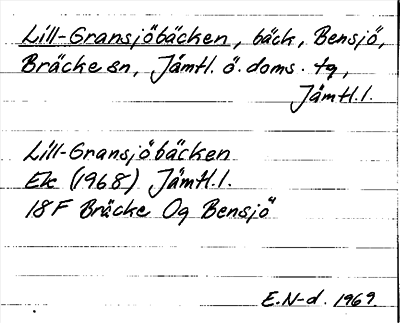 Lill-Gransjöbäcken, bäck, Bensjö,
Bräcke sn, Jämtl. ö. doms. tg,
Jämtl.l.
Lill-Gransjöbäcken
Ek (1968) Jämtl.l.
18F Bräcke Og Bensjö
E.N-d. 1969.